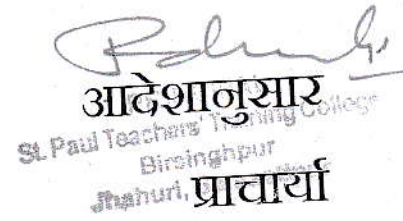 आदेशानुसार
St. Paul Teachers' Training College
Birsinghpur
Jhahuri,
प्राचार्या